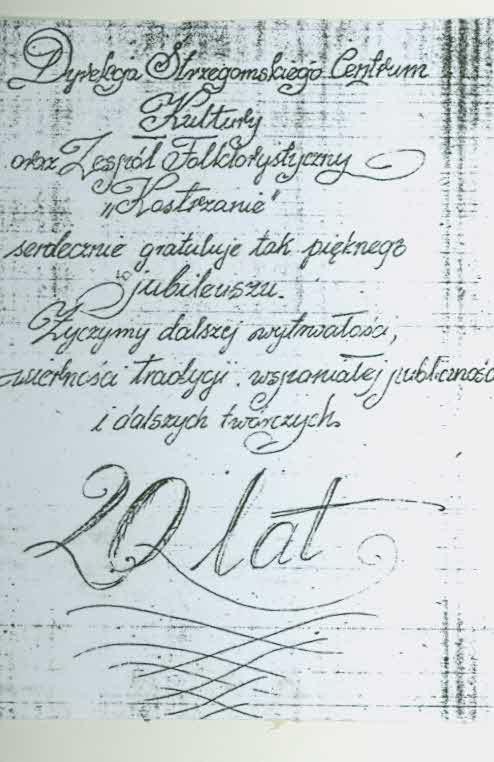 Dyrekcja Strzegomskiego Centrum
Kultury
oraz Zespół Folklorystyczny
„Kostrzanie"
serdecznie gratuluje tak pięknego
jubileuszu.
Życzymy dalszej wytrwałości,
wierności tradycji, wspaniałej publiczności
i dalszych twórczych
20 lat